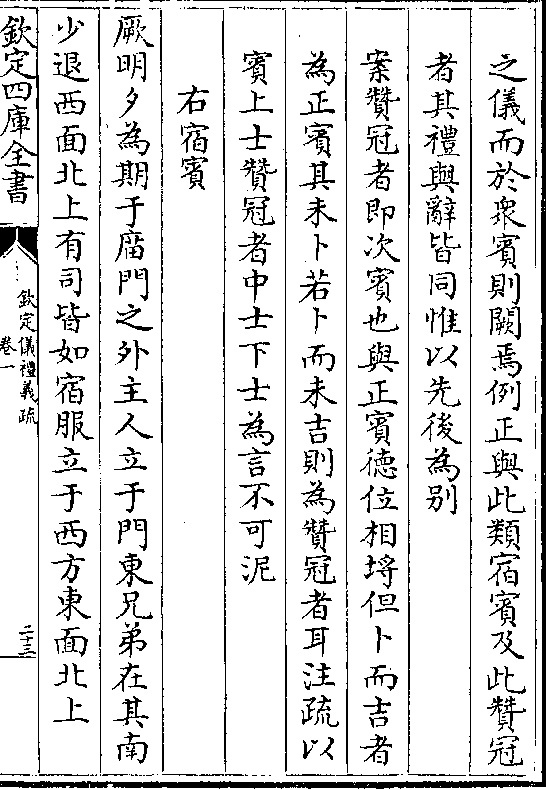 之儀而於衆賓則闕焉例正與此類宿賓及此贊冠
者其禮與辭皆同惟以先後為别
案贊冠者即次賓也與正賓德位相埒但卜而吉者
為正賓其未卜若卜而未吉則為贊冠者耳注疏以
賓上士贊冠者中士下士為言不可泥
右宿賓
厥明夕為期于廟門之外主人立于門東兄弟在其南
少退西面北上有司皆如宿服立于西方東面北上
欽定四庫全書
欽定儀禮義疏
卷一
二十三